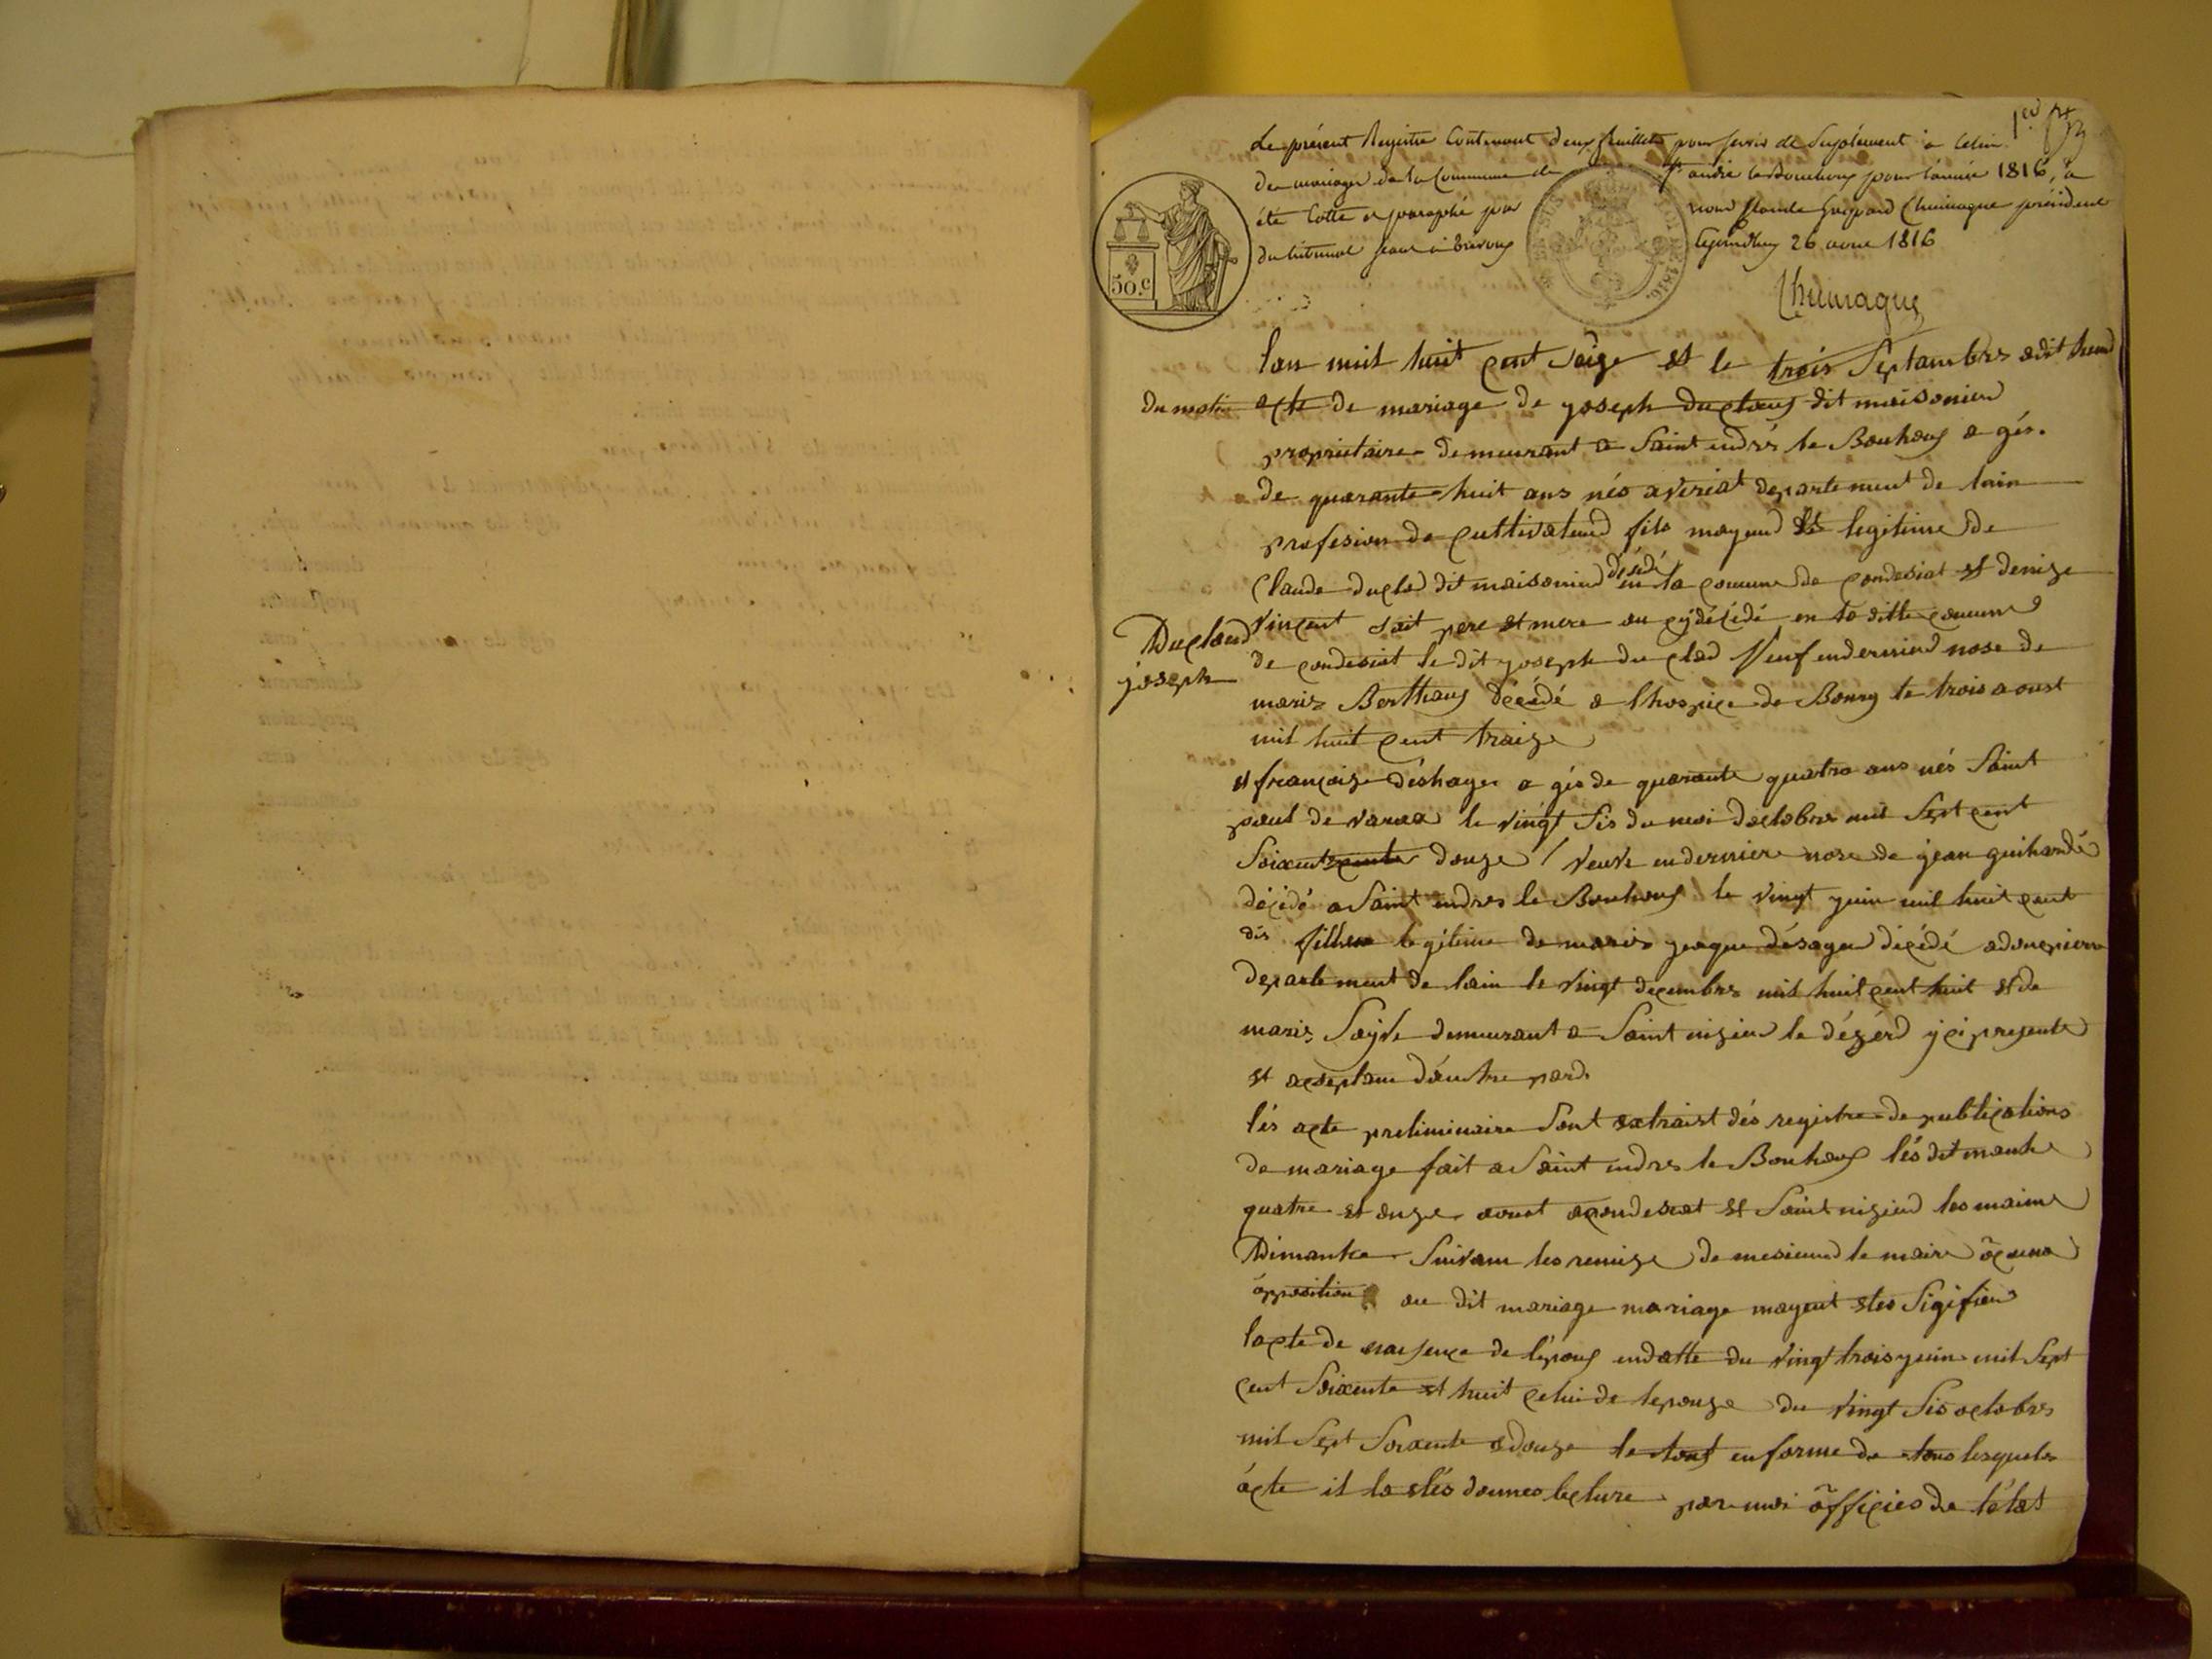 1er
Le présent Registre Contenant deux feuillets pour servir de Suplément à Celui
des mariages de la Commune de St andré le Bouchoux pour l'année 1816, a
été Cotté et paraphé par nous Gaspard Chuinague président
du tribunal séant à trevoux 26 1816
50.c
1816.
Chuinague
lan mil huit cent saize et le trois Septambres a dit heurd
du matin acte de mariage de yoseph duclaux dit maisonieu
propriétaire demeurant a Saint endrés le Bouhoux a gés
de quarante huit ans nés a veriat departement de lain
profesion de cultivateur fils mayeur et legitime de
Claude duclod dit maisonieu désédé en la comune de condesiat et denize
Duclaud Vincent soit pere et mere décédé en la ditte comune
joseph de condesiat le dit yoseph du clod Veuf en dernier nose de
maris Berthaux décédé a lhospice de Bourg le trois aoust
mil huit cent traize
et françoize déshayes a gés de quarante quatre ans nés Saint
paul de varax le vingt sis du moi doctobres mil Sept cent
Soixente douze Veuve en derniere nose de jean guihardé
décédé a Saint endres le Bouhoux le vingt yuin mil huit cent
dis fillies legitime de maris yaque désayes décédé a donpierre
departement de lain le vingt decembres mil huit cent huit et de
maris Sayve demeurant a Saint nizieu le dézerd yci presente
et aceptam d'autre pard.
lés acte preliminaire sont extraist dés registre de publications
de mariage fait a Saint endres le Bouhoux lés ditmanhe
quatre et onze aoust a condesiat et Saint nizieu les maime
Dimanhe Suivam les remize de mesieurs le maire ocune
opposition au dit mariage mariage mayent etes Sigifiers
lacte de naisence de lépoux en datte du vingt trois yuin mil Sept
cent Soixente et huit celui de lepouze du vingt sis octobres
mil Sept Soixente a douze le tout en forme de tous lesquels
acte il la etés donnes lecture par moi officies de létat